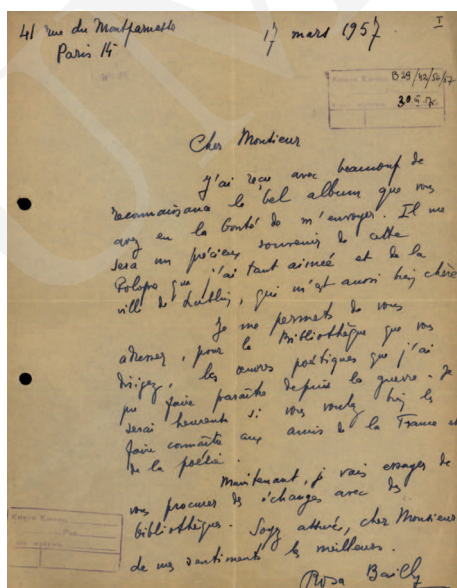 41 rue du Montparnasse
Paris 14
17 mars 1957
I
B 29/42/56/57
30.
Cher Monsieur
J'ai reçu avec beaucoup de
reconnaissance le bel album que vous
avez eu la bonté de m'envoyer. Il me
sera un précieux souvenir de cette
Pologne que j'ai tant aimée et de la
ville de Lublin, qui m'est aussi bien chère
Je me permets de vous
adresser, pour la Bibliothèque que vous
dirigez, les œuvres poétiques que j'ai
pu faire paraître depuis la guerre. Je
serai heureuse si vous voulez bien les
faire connaître aux amis de la France et
de la poésie.
Maintenant, je vais essayer de
vous procurer des échanges avec des
bibliothèques. Soyez assuré, cher Monsieur
de mes sentiments les meilleurs.
Rosa Bailly